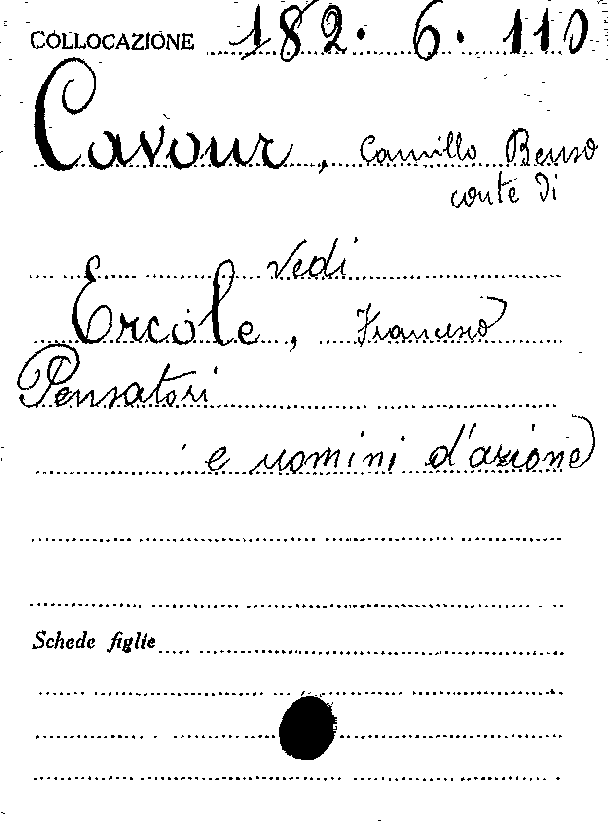 COLLOCAZIONE 182. 6. 110
Cavour, Camillo Benso
conte di
Vedi
Ercole, Francesco
Pensatori
e uomini d'azione
Schede figlie